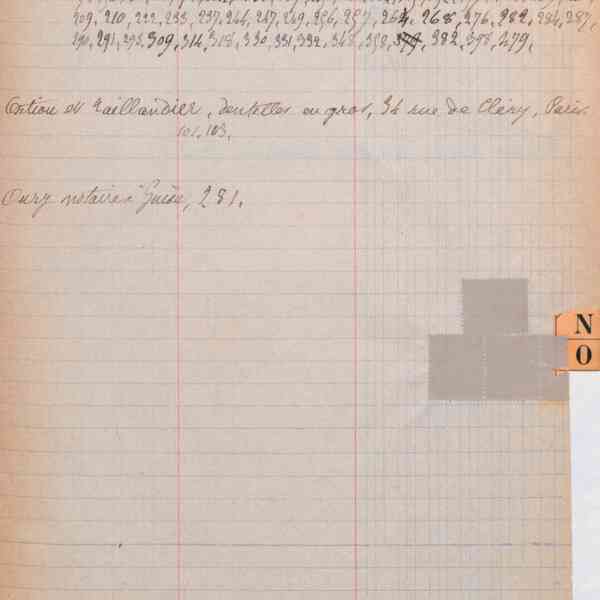 209, 210, 222, 233, 237, 244, 247, 249, 256, 257, 264, 268, 276, 282, 284, 287,
290, 291, 293, 309, 314, 318, 330, 331, 332, 348, 358, 382, 398, 279,
Ortion et Taillandier, dentelles en gros, 34 rue de Cléry, Paris
101, 103,
Oury notaire à Guise, 281.
N
O